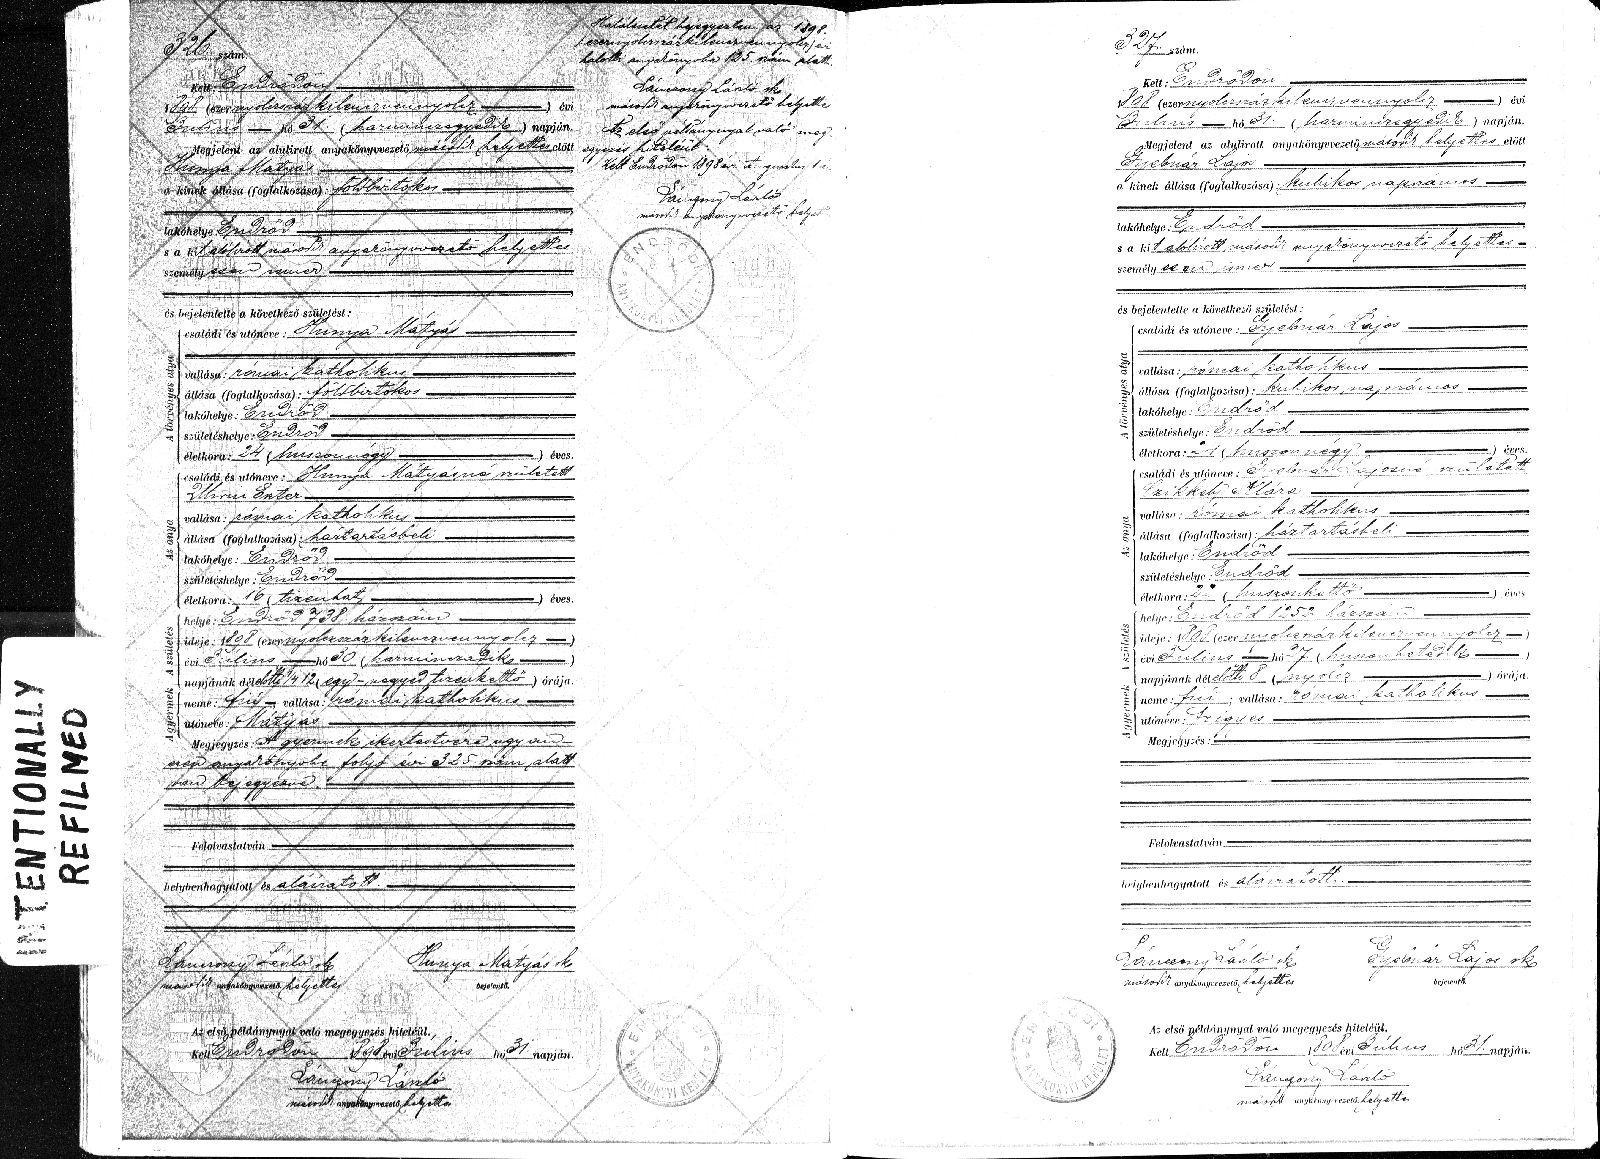 INTENTIONALLY
REFILMED
326 szám
Kelt: Endrődön
1898 (ezernyolcszázkilenczvennyolcz) évi
Julius hó 31. (harminczegyedik) napján.
Megjelent az alulirott anyakönyvvezető másodh helyettes előtt
Hunya Mátyás
a kinek állása (foglalkozása): földbirtokos
lakóhelye: Endrőd
s a kit alulirott másodh anyakönyvvezető helyettes
személyesen ismer
és bejelentette a következő születést:
A törvényes atya
családi és utóneve: Hunya Mátyás
vallása: római katholikus
állása (foglalkozása): földbirtokos
lakóhelye: Endrőd
születéshelye: Endrőd
életkora: 24 (huszonnégy) éves.
Az anya
családi és utóneve: Hunya Mátyásné született
Eszter
vallása: római katholikus
állása (foglalkozása): háztartásbeli
lakóhelye: Endrőd
születéshelye: Endrőd
életkora: 16 (tizenhat) éves.
A születés
helye: Endrőd 738 házszám
ideje: 1898 (ezernyolcszázkilenczvennyolcz)
évi Julius hó 30 (harminczadik)
napjának délelőtti 1/4 12 (egy negyed tizenkettő) órája.
A gyermek
neme: fiú, vallása: római katholikus
utóneve: Mátyás
Megjegyzés: A gyermek ikertestvére ugyan-
ezen anyakönyvbe folyó évi 325 szám alatt
van bejegyezve.
Felolvastatván
helybenhagyatott és aláiratott.
Lánczony László sk
másodh anyakönyvvezető helyettes
Hunya Mátyás sk
bejelentő.
Az első példánynyal való megegyezés hiteléül.
Kelt Endrődön 1898 évi Julius hó 31 napján.
Lánczony László
másodh anyakönyvvezető helyettes
Halálesetet bejegyeztem az 1898.
(ezernyolcszázkilenczvennyolcz) évi
halotti anyakönyvbe 135 szám alatt.
Lánczony László sk
másodh anyakönyvvezető helyettes
Az első példánynyal való meg
egyezés hiteléül.
Kelt Endrődön 1898 évi
Lánczony László
másodh anyakönyvvezető helyet
327. szám.
Kelt: Endrődön
1898 (ezernyolcszázkilenczvennyolcz) évi
Julius hó 31. (harminczegyedik) napján.
Megjelent az alulirott anyakönyvvezető másodh helyettes előtt
Gyebnár Lajos
a kinek állása (foglalkozása): kubikos napszámos
lakóhelye: Endrőd
s a kit alulirott másodh anyakönyvvezető helyettes
személyesen ismer
és bejelentette a következő születést:
A törvényes atya
családi és utóneve: Gyebnár Lajos
vallása: római katholikus
állása (foglalkozása): kubikos napszámos
lakóhelye: Endrőd
születéshelye: Endrőd
életkora: 24 (huszonnégy) éves.
Az anya
családi és utóneve: Gyebnár Lajosné született
Klára
vallása: római katholikus
állása (foglalkozása): háztartásbeli
lakóhelye: Endrőd
születéshelye: Endrőd
életkora: 22 (huszonkettő) éves
A születés
helye: Endrőd 1252 házszám
ideje: 1898 (ezernyolcszázkilenczvennyolcz)
évi Julius hó 27 (huszonhetedik)
napjának délelőtti 8 (nyolcz) órája.
A gyermek
neme: fiú; vallása: római katholikus
utóneve: Frigyes
Megjegyzés:
Felolvastatván
helybenhagyatott és aláiratott.
Lánczony László sk
másodh anyakönyvvezető, helyettes
Gyebnár Lajos sk
bejelentő.
Az első példánynyal való megegyezés hiteléül.
Kelt Endrődön 1898 évi Julius hó 31. napján.
Lánczony László
másodh anyakönyvvezető, helyettes